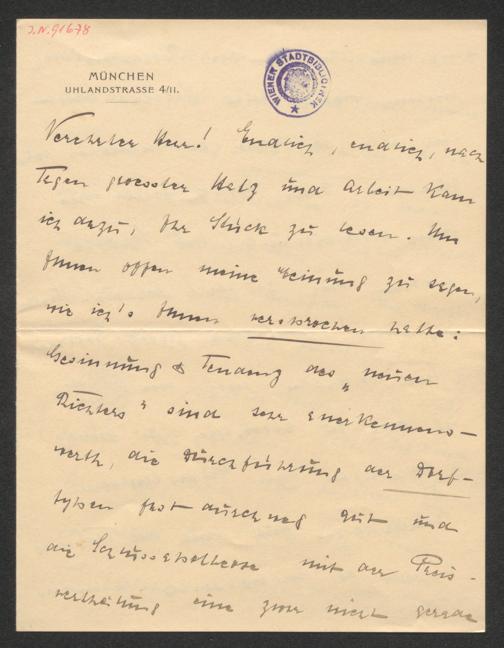 J.N. 91678
MÜNCHEN
UHLANDSTRASSE 4/II.
WIENER STADTBIBLIOTHEK
Verehrter Herr! Endlich, endlich, nach
Tagen groesster Hetz und Arbeit kam
ich dazu, Ihr Stück zu lesen. Um
Ihnen offen meine Meinung zu sagen,
wie ich's Ihnen versprochen hatte:
Gesinnung & Tendenz des „neuen
Richters" sind sehr anerkennens-
werth, die Durchführung der Dorf-
typen fast durchweg gut und
die Schlusspointe mit der Preis-
vertheilung eine zwar nicht gerade